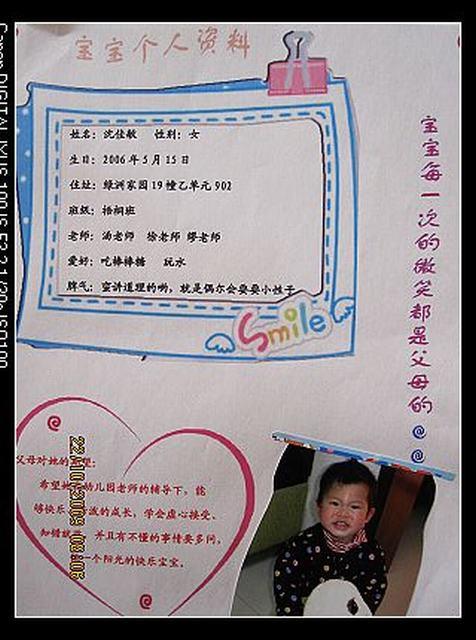 宝宝个人资料
姓名：沈佳敏 性别：女
生日：2006年5月15日
住址：绿洲家园19幢乙单元902
班级：梧桐班
老师：汤老师 徐老师 缪老师
爱好：吃棒棒糖 玩水
脾气：蛮讲道理的哟，就是偶尔会耍耍小性子
Smile
宝宝每一次的微笑都是父母的
父母对她的 望：
希望她 幼儿园老师的辅导下，能
够快乐 泼的成长，学会虚心接受、
知错就 并且有不懂的事情要多问，
一个阳光的快乐宝宝。
22/10/2009 08:06
Canon DIGITAL IXUS 100 IS F3.2 1/30s ISO100